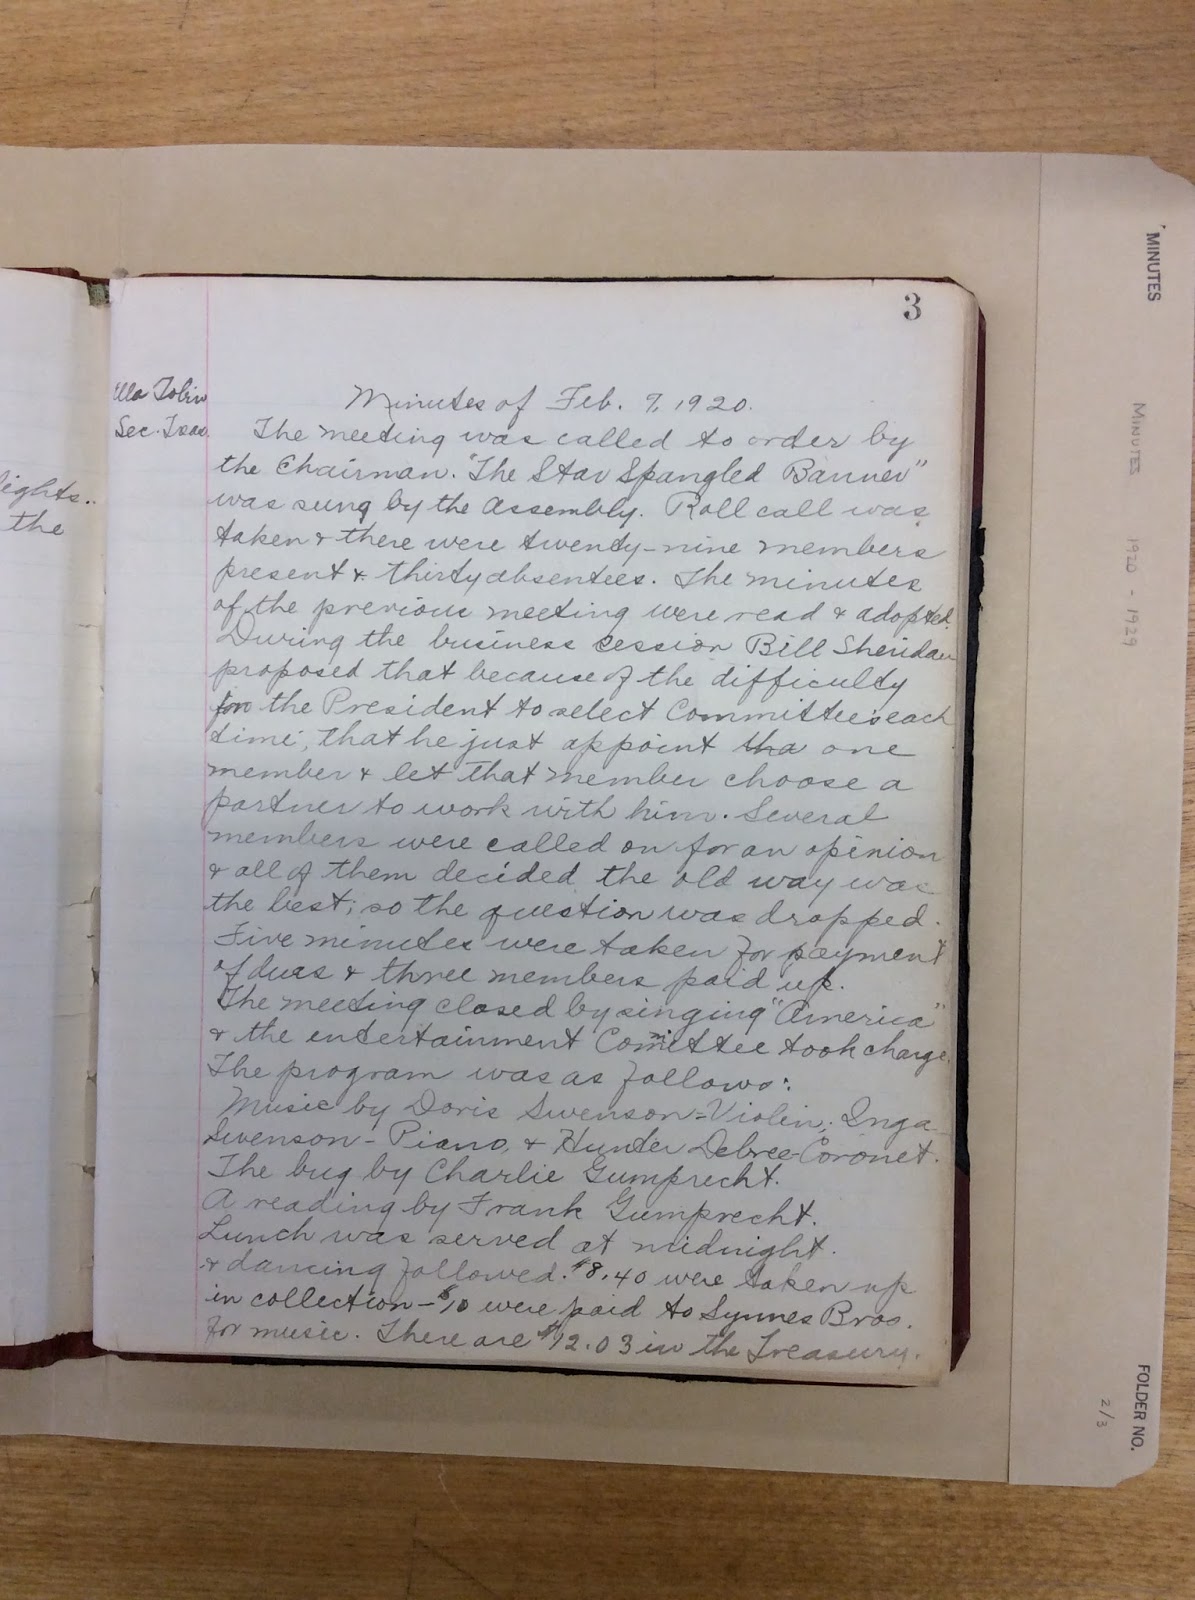 3
Ella Tobin
Sec. Treas.
lights..
the
Minutes of Feb. 7, 1920.
The meeting was called to order by
the Chairman. "The Star Spangled Banner"
was sung by the Assembly. Roll call was
taken & there were twenty-nine members
present & thirty absentees. The minutes
of the previous meeting were read & adopted.
During the business session Bill Sheridan
proposed that because of the difficulty
for the President to select Committees each
time, that he just appoint tha one
member & let that member choose a
partner to work with him. Several
members were called on for an opinion
& all of them decided the old way was
the best; so the question was dropped.
Five minutes were taken for payment
of dues & three members paid up.
The meeting closed by singing "America"
& the entertainment Committee took charge.
The program was as follows:
Music by Doris Swenson-Violin, Inga
Swenson - Piano, & Hunter Debree-Coronet.
The bug by Charlie Gumprecht.
A reading by Frank Gumprecht.
Lunch was served at midnight.
& dancing followed. $8.40 were taken up
in collection - $10 were paid to Synnes Bros.
for music. There are $12.03 in the Treasury.
MINUTES
MINUTES 1920 - 1929
FOLDER NO.
2/3